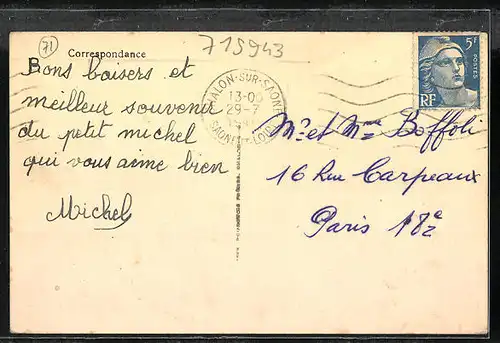 71
715943
Correspondance
Bons baisers et
meilleur souvenir
du petit michel
qui vous aime bien
Michel
CHALON-SUR-SAONE
13-00
29-7
SAONE-ET-LOIRE
5F
POSTES
RF
Mr et Mme Boffoli
16 Rue Carpeaux
Paris 18e